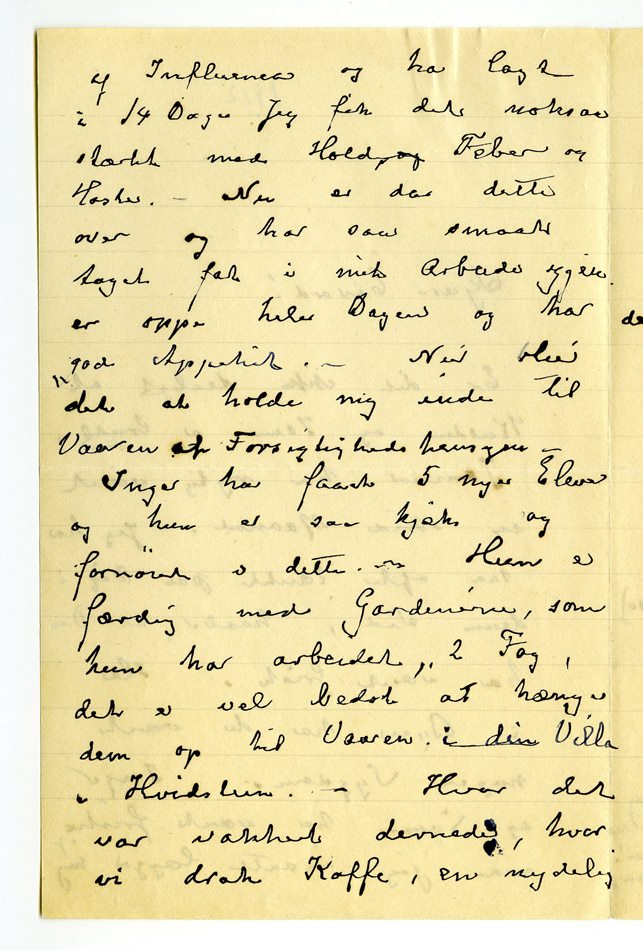 af Influensa og har lagt
i 14 Dage Jeg fik det noksaa
stærkt med Hold, og Feber og
Hoste. – Nu er da dette
over og har saa smaat
taget fat i mit Arbeide igjen.
er oppe hele Dagen og har de
god Appetit. – Nu blir
det at holde mig inde til
Vaaren af Forsigtighedshensyn –
Inger har faaet 5 nye Elever
og hun er saa kjæk og
fornöiet i dette. – Hun er
færdig med Gardinerne, som
hun har arbeidet, 2 Fag,
det er vel bedst at hænge
dem op til Vaaren. i din Villa
i Hvidsten. – Hvor det
var vakkert dernede, hvor
vi drak Kaffe, en nydelig